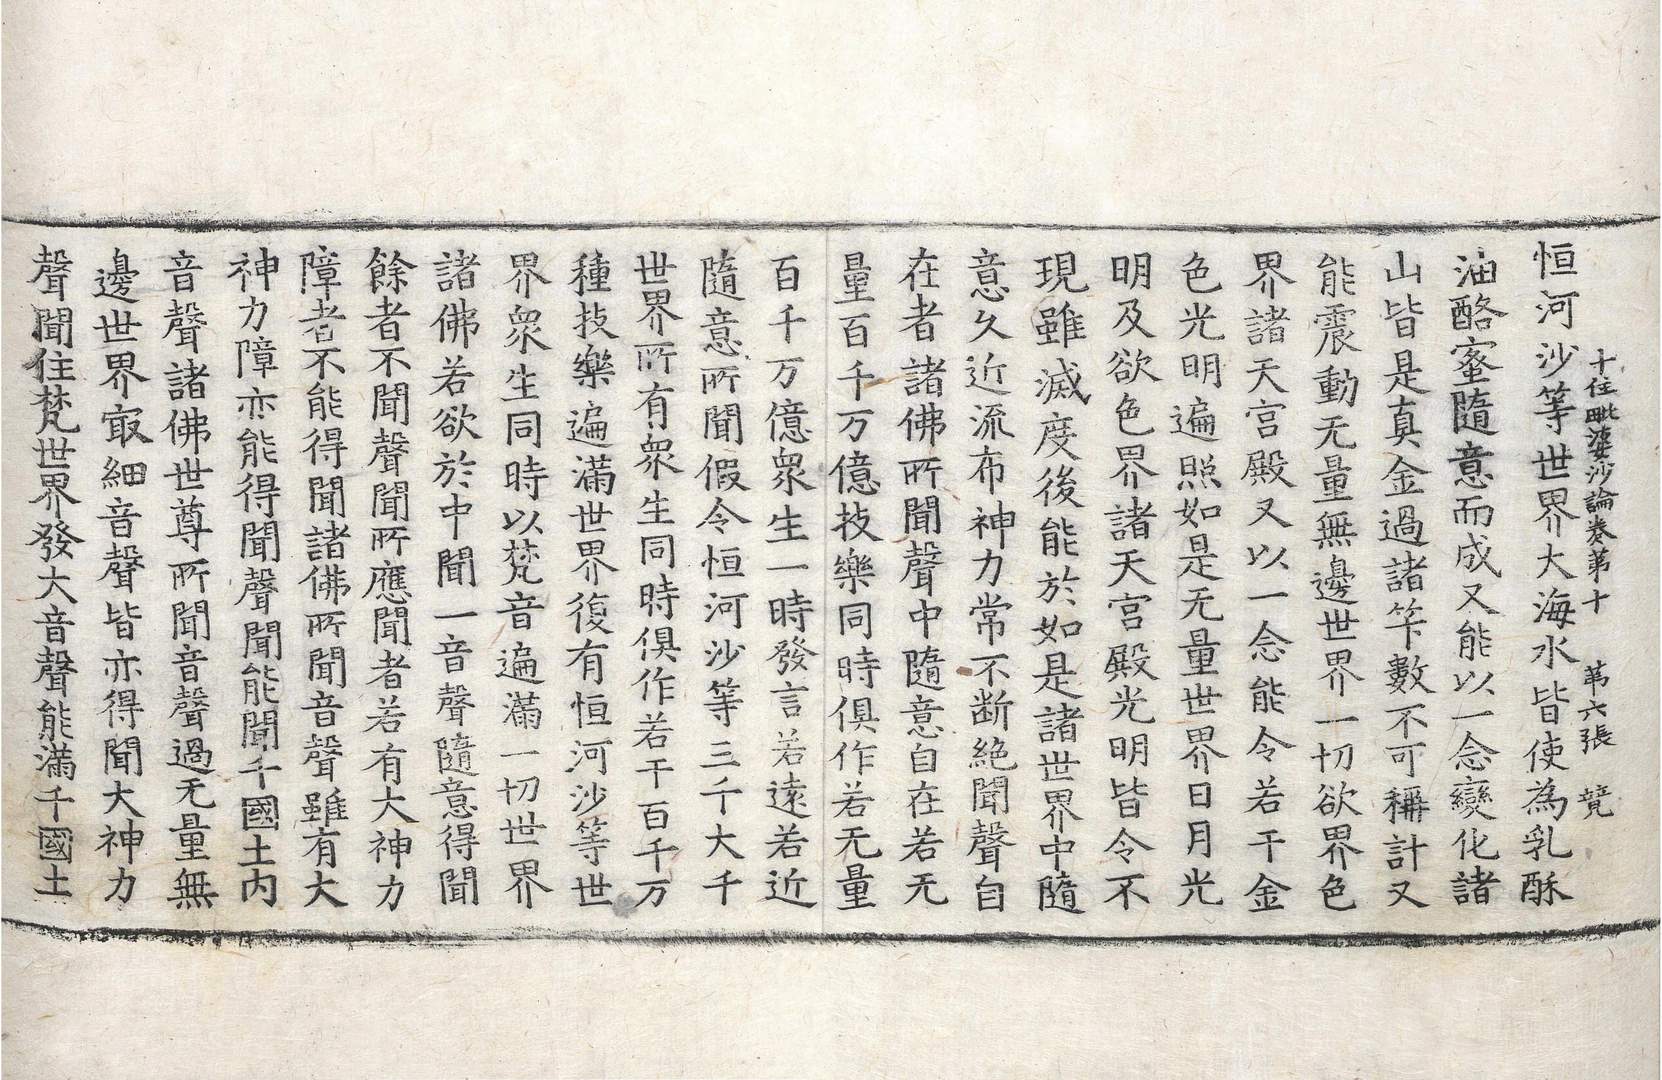 十住毗婆沙論卷第十 苐六張 競
恒河沙等世界大海水皆使為乳酥
油酪蜜隨意而成又能以一念變化諸
山皆是真金過諸筭數不可稱計又
能震動无量無邊世界一切欲界色
界諸天宮殿又以一念能令若干金
色光明遍照如是无量世界日月光
明及欲色界諸天宮殿光明皆令不
現雖滅度後能於如是諸世界中隨
意久近流布神力常不断絶聞聲自
在者諸佛所聞聲中隨意自在若无
量百千万億技樂同時俱作若无量
百千万億衆生一時發言若遠若近
隨意所聞假令恒河沙等三千大千
世界所有衆生同時俱作若干百千万
種技樂遍滿世界復有恒河沙等世
界衆生同時以梵音遍滿一切世界
諸佛若欲於中聞一音聲隨意得聞
餘者不聞聲聞所應聞者若有大神力
障者不能得聞諸佛所聞音聲雖有大
神力障亦能得聞聲聞能聞千國土内
音聲諸佛世尊所聞音聲過无量無
邊世界㝡細音聲皆亦得聞大神力
聲聞住梵世界發大音聲能滿千國土